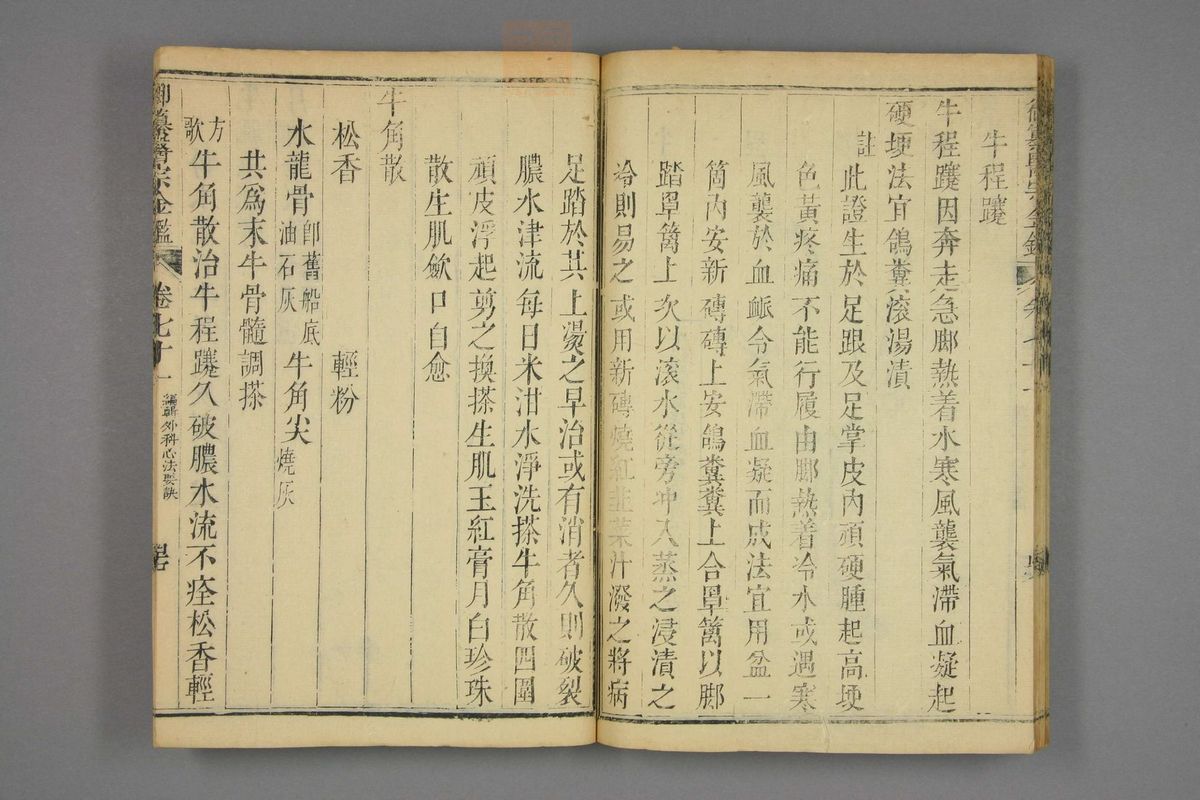 牛程蹇
牛程蹇因奔走急脚熱着水寒風襲氣滯血凝起
硬埂法宜鴿糞滾湯漬
註
此證生於足跟及足掌皮内頑硬腫起高埂
色黃疼痛不能行履由脚熱着冷水或遇寒
風襲於血脈令氣滯血凝而成法宜用盆一
箇内安新磚磚上安鴿糞糞上合罩籬以脚
踏罩籬上次以滾水從旁冲入蒸之浸漬之
冷則易之或用新磚燒紅韭菜汁潑之將病
足踏於其上燙之早治或有消者久則破裂
膿水津流每日米泔水淨洗搽牛角散四圍
頑皮浮起剪之換搽生肌玉紅膏月白珍珠
散生肌歛口自愈
牛角散
松香 輕粉
水龍骨卽舊船底油石灰 牛角尖燒灰
共為末牛骨髓調搽
方歌
牛角散治牛程蹇久破膿水流不痊松香輕
御纂醫宗金鑑 卷七十一 編輯外科心法要訣